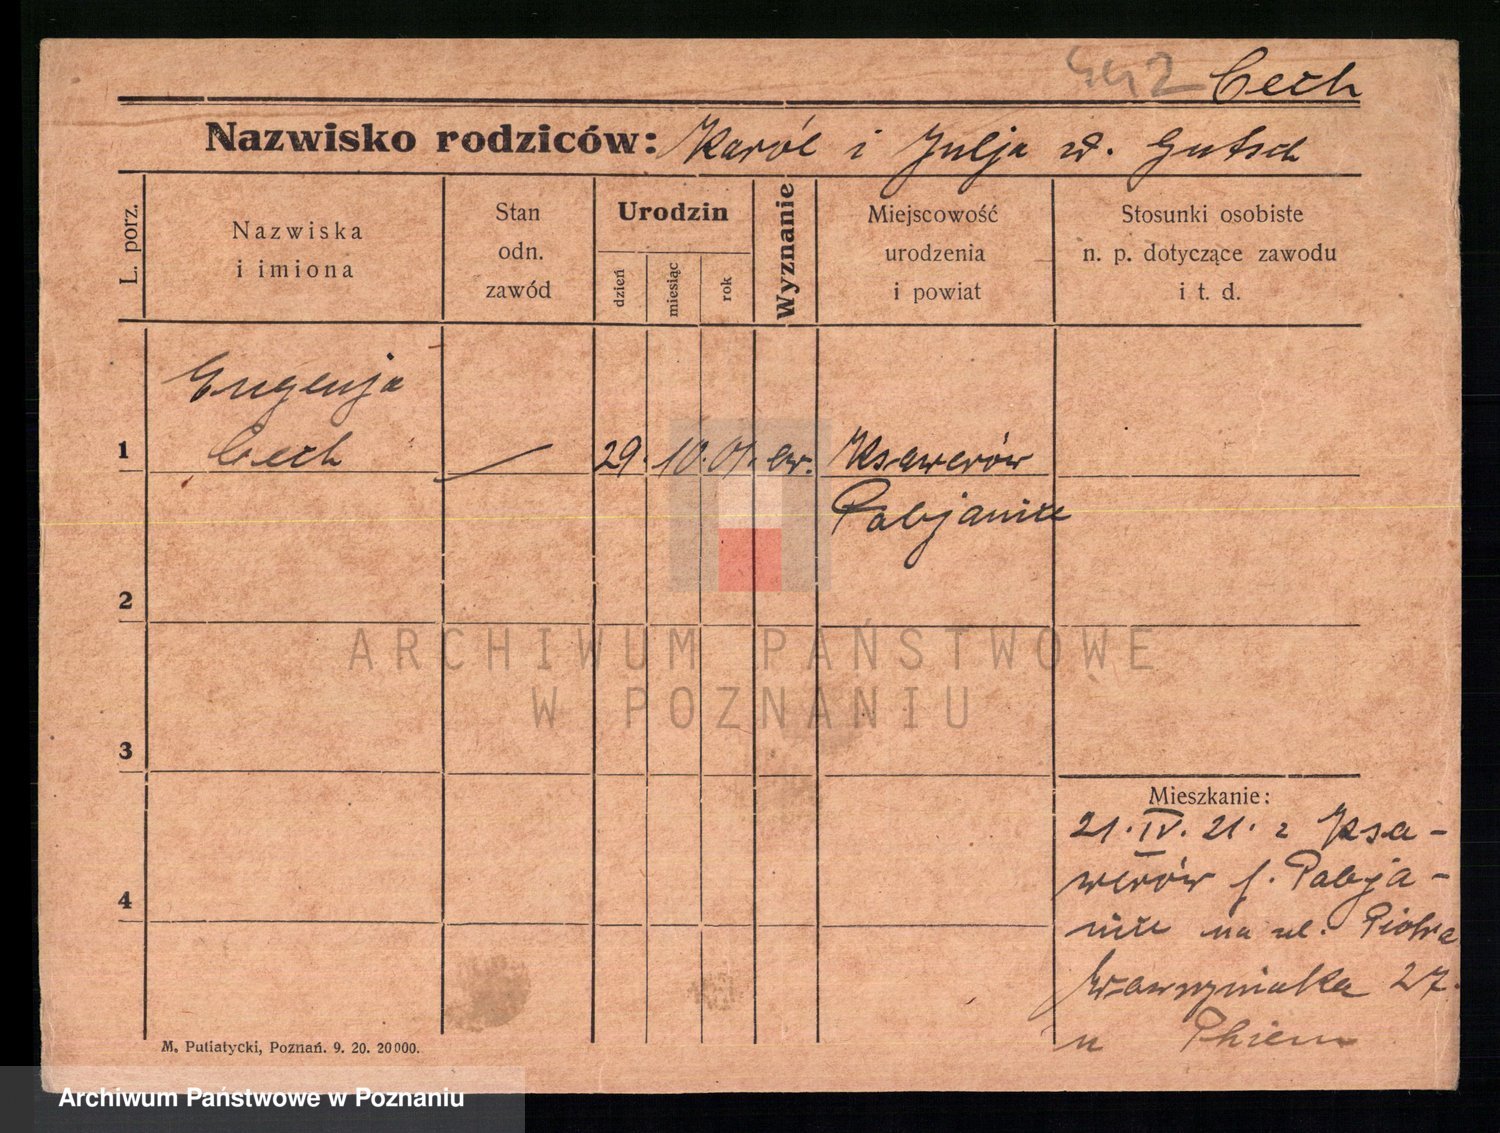 442 Cech
Nazwisko rodziców: Karól i Julja zd. Gutsch
L. porz.
Nazwiska
i imiona
Stan
odn.
zawód
Urodzin
dzień
miesiąc
rok
Wyznanie
Miejscowość
urodzenia
i powiat
Stosunki osobiste
n. p. dotyczące zawodu
i t. d.
Eugenja
1 Cech — 29. 10. 01. ew. Ksawerów
Pabjanice
2
3
4
Mieszkanie:
21. IV. 21. z Ksa-
werów p. Pabja-
nice na ul. Piotra
Wawrzyniaka 27.
u Thiem
M. Putiatycki, Poznań. 9. 20. 20000.
ARCHIWUM PAŃSTWOWE
W POZNANIU
Archiwum Państwowe w Poznaniu